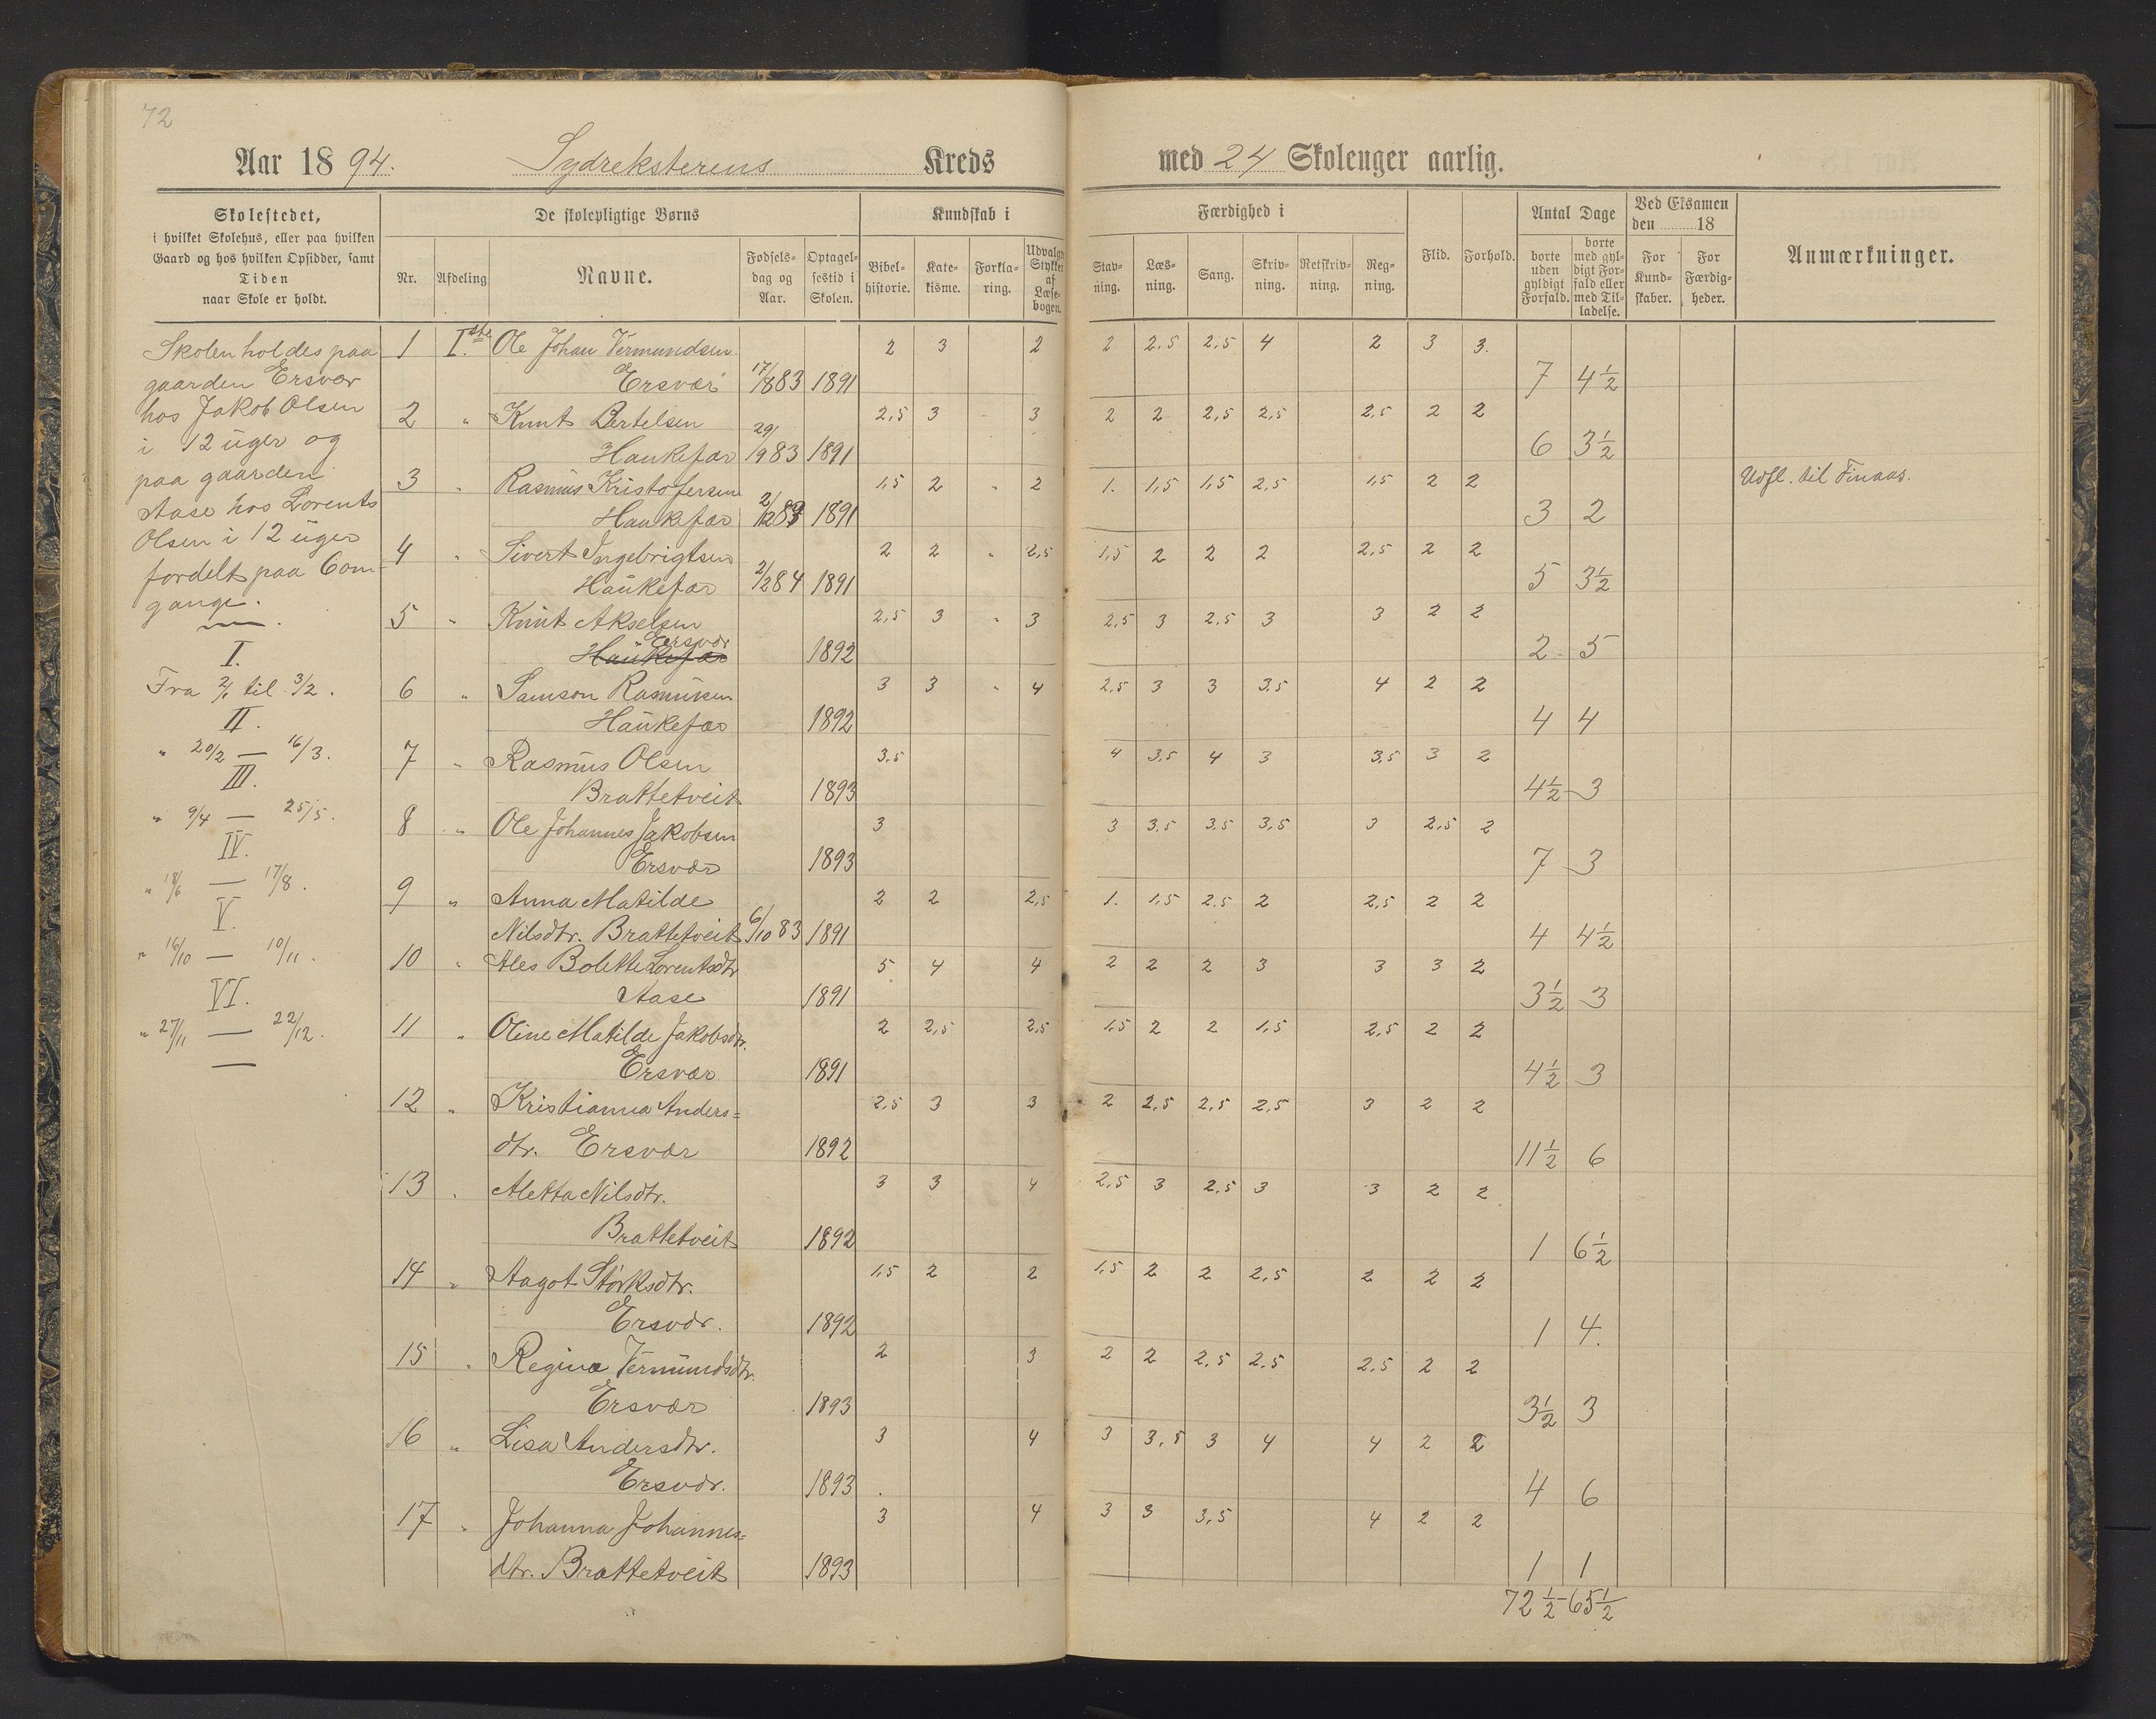 72
Aar 1894. Sydreksterens Kreds med 24 Skoleuger aarlig.
Skolestedet,
i hvilket Skolehus, eller paa hvilken
Gaard og hos hvilken Opsidder, samt
Tiden
naar Skole er holdt.
De skolepligtige Børns
Nr. Afdeling Navne. Fødselsdag og Aar. Optagelsestid i Skolen.
Kundskab i
Bibelhistorie. Katekisme. Forklaring. Udvalgte Stykker af Læsebogen.
Færdighed i
Stavning. Læsning. Sang. Skrivning. Retskrivning. Regning.
Flid. Forhold.
Antal Dage
borte uden gyldigt Forfald. borte med gyldigt Forfald eller med Tilladelse.
Ved Eksamen
den 18
For Kundskaber. For Færdigheder.
Anmærkninger.
Skolen holdes paa
gaarden Ersvær
hos Jakob Olsen
i 12 uger og
paa gaarden
Aase hos Lorents
Olsen i 12 uger
fordelt paa 6 om-
gange.
I.
Fra 2/1 til 3/2.
II.
" 20/2 — 16/3.
III.
" 9/4 — 25/5.
IV.
" 18/6 — 17/8.
V.
" 16/10 — 10/11.
VI.
" 27/11 — 22/12.
1 Iste Ole Johan Vermundsen 2 3 2 2 2.5 2.5 4 2 3 3.
Ersvær 17/8 83 1891 7 4½
2 " Knut Bertelsen 2,5 3 3 2 2 2,5 2,5 2,5 2 2
Haukefær 29/9 83 1891 6 3½
3 " Rasmus Kristofersen 1,5 2 " 2 1. 1,5 1,5 2,5 1,5 2 2 Udfl. til Finaas.
Haukefær 1891 3 2
4 " Sivert Ingebrigtsen 2 2 " 2,5 1,5 2 2 2 2,5 2 2
Haukefær 2/2 84 1891 5 3½
5 " Knut Akselsen 2,5 3 " 3 2,5 3 2,5 3 3 2 2
Ersvær
Haukefær 1892 2 5
6 " Samson Rasmussen 3 3 " 4 2,5 3 3 3,5 4 2 2
Haukefær 1892 4 4
7 " Rasmus Olsen 3,5 4 3,5 4 3 3,5 3 2
Brattetveit 1893 4½ 3
8 " Ole Johannes Jakobsen 3 3 3,5 3,5 3,5 3 2,5 2
Ersvær 1893 7 3
9 " Anna Matilde 2 2 2,5 1. 1,5 2,5 2 2,5 2 2
Nilsdtr. Brattetveit 6/10 83 1891 4 4½
10 " Ales Bolette Lorentsdtr 5 4 4 2 2 2 3 3 3 2
Aase 1891 3½ 3
11 " Oline Matilde Jakobsdtr. 2 2,5 2,5 1,5 2 2 1,5 2,5 2 2
Ersvær 1891 4½ 3
12 " Kristianna Anders= 2,5 3 3 2 2,5 2,5 2,5 3 2 2
dtr. Ersvær 1892 11½ 6
13 " Aletta Nilsdtr. 3 3 4 2,5 3 2,5 3 3 2 2
Brattetveit 1892 1 6½
14 " Aagot Størksdtr. 1,5 2 2 1,5 2 2 2,5 2 2 2
Ersvær. 1892 1 4.
15 " Regina Vermundsdtr. 2 3 2 2 2,5 2,5 2,5 2 2
Ersvær 1893 3½ 3
16 " Lisa Andersdtr. 3 4 3 3,5 3 4 4 2 2
Ersvær. 1893 4 6
17 " Johanna Johannes= 3 4 3 3 3,5 4 2 2
dtr. Brattetveit 1893 1 1
72½ - 65½